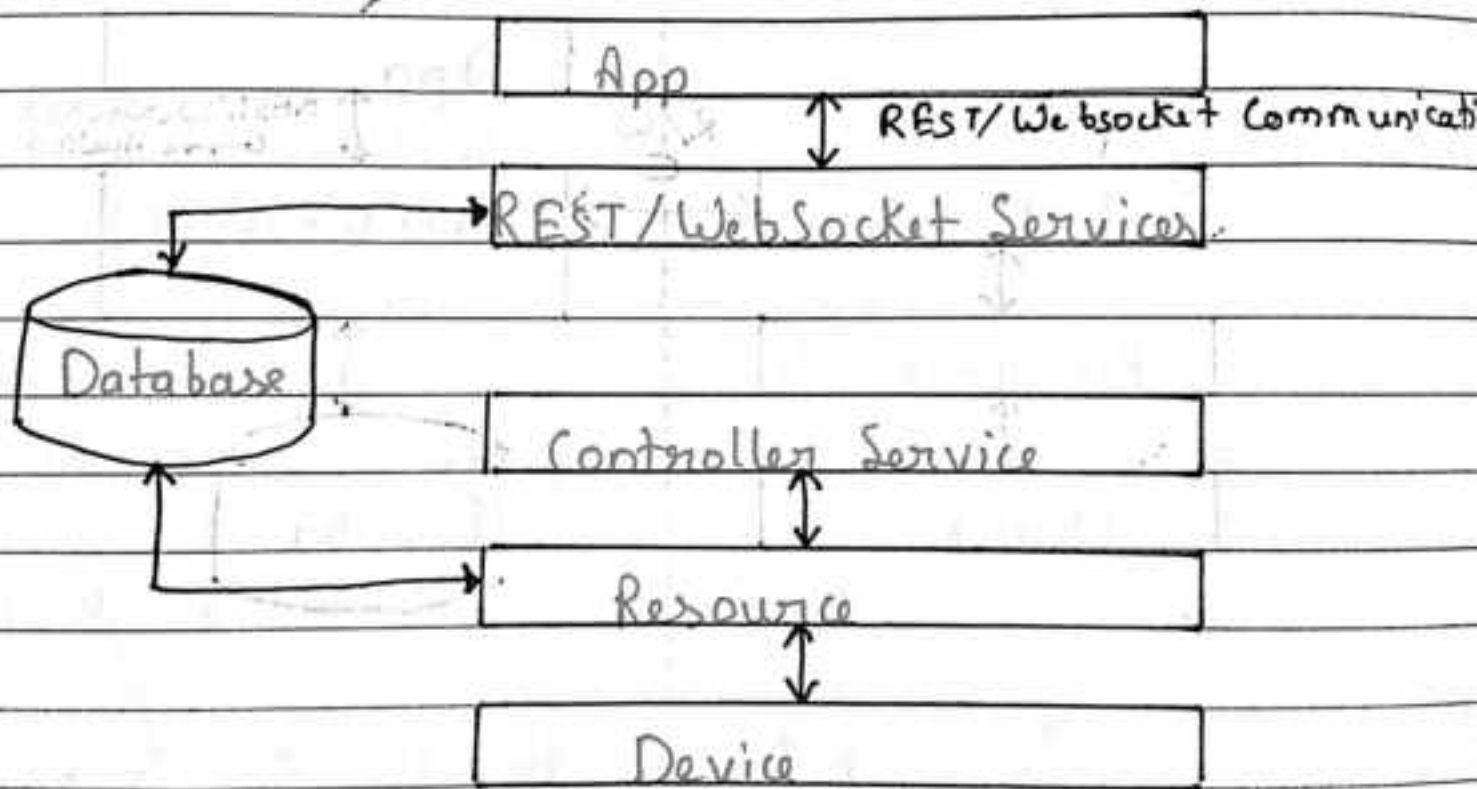 App
REST/Websocket Communicati
REST/WebSocket Services
Database
Controller Service
Resource
Device